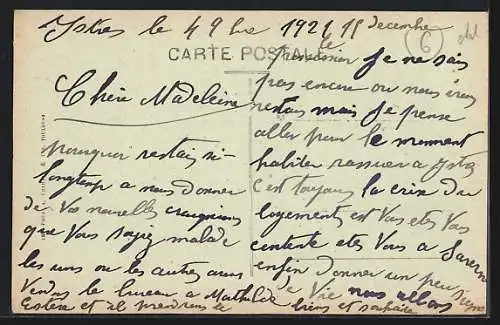 Istres le 4 9bre 1921
CARTE POSTALE
6
Chère Madeleine
pourquoi restais si
longtemp a nous donner
de Vos nouvelles craignions
que Vous soyez malade
les uns ou les autres avons
Vendus le bureau a Mathilde
et il prendras le
15 decembre
possession je ne sais
pas encore ou nous irons
restais mais je pense
aller pour le moment
habiter rassuer a Istres
c'est toujours la crise du
logements est Vous etes Vous
contente etes Vous a
enfin donner un peu
de Vie nous allons
bien et souhaite